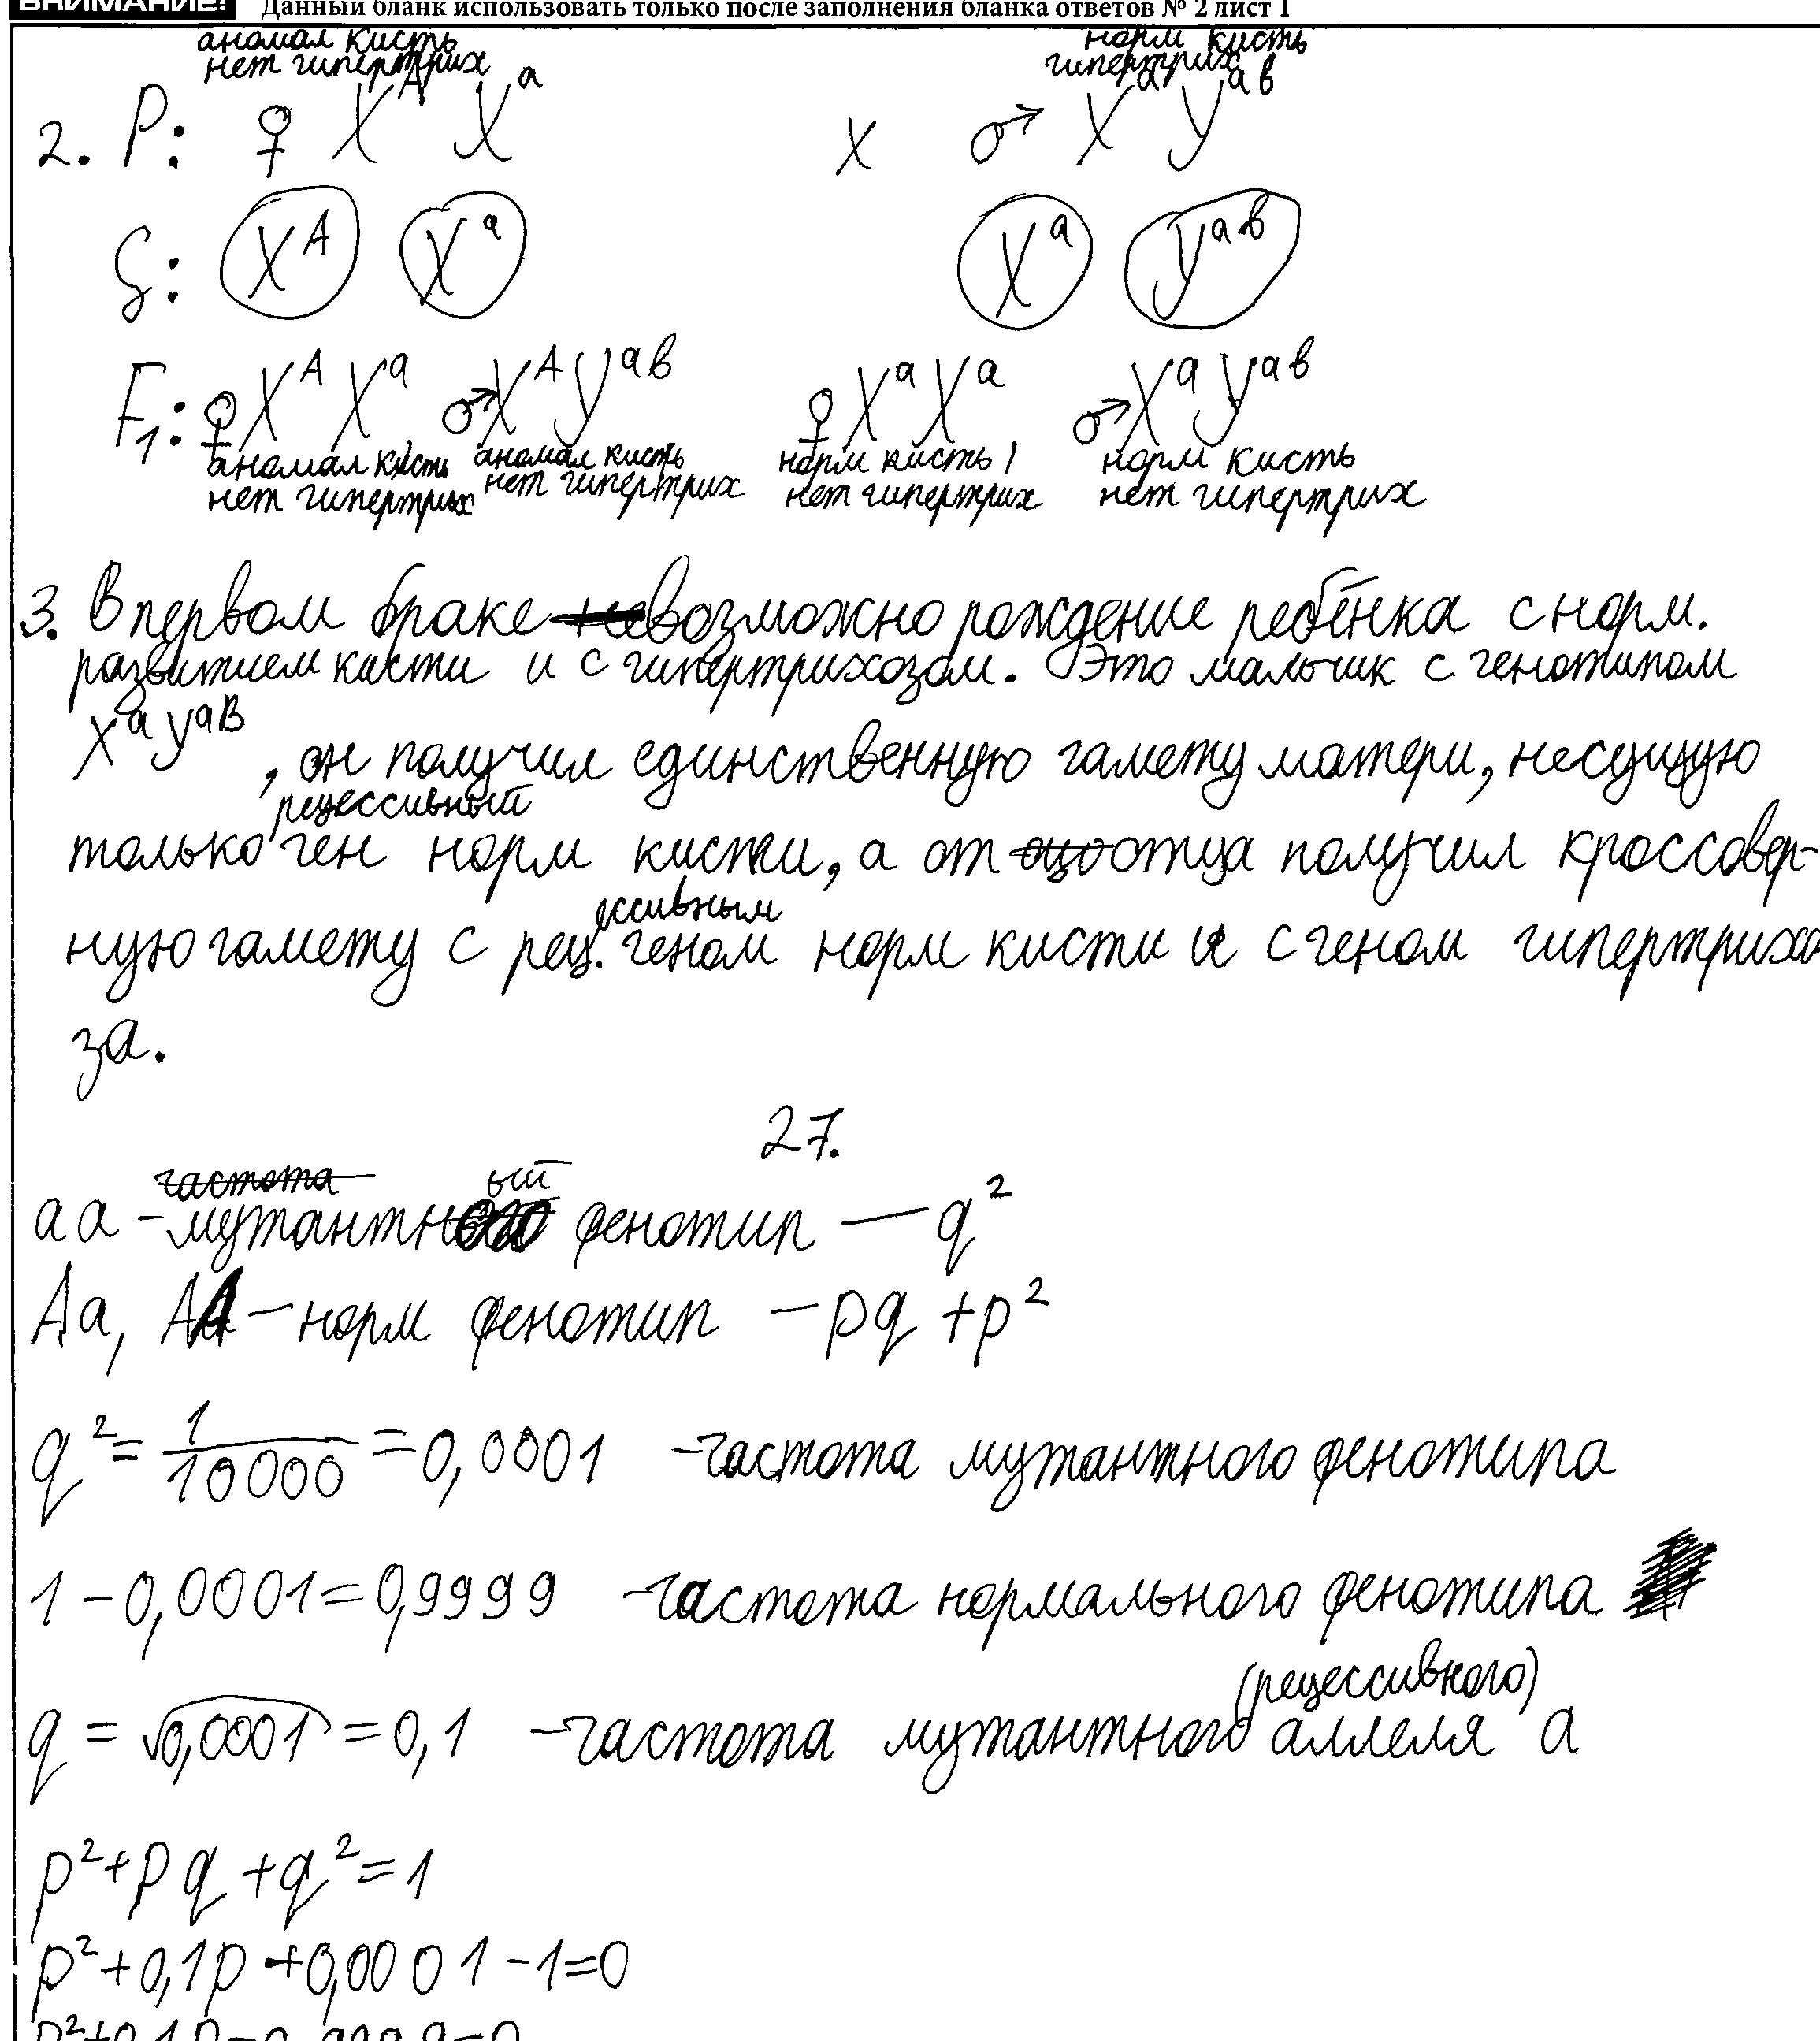 ВНИМАНИЕ! Данный бланк использовать только после заполнения бланка ответов № 2 лист 1
аномал кисть норм кисть
нет гипертрих гипертрих
2. P: ♀ X^A X^a x ♂ X^a Y^ав
G: X^A X^a X^a Y^ав
F₁: ♀ X^A X^a ♂ X^A Y^ав ♀ X^a X^a ♂ X^a Y^ав
аномал кисть аномал кисть норм кисть, норм кисть
нет гипертрих нет гипертрих нет гипертрих нет гипертрих
3. В первом браке возможно рождение ребёнка с норм.
развитием кисти и с гипертрихозом. Это мальчик с генотипом
X^a Y^aB, он получил единственную гамету матери, несущую
только рецессивный ген норм кисти, а от отца получил кроссовер-
ную гамету с рецессивным геном норм кисти и с геном гипертрихо
за.
27.
аа - мутантный фенотип — q²
Аа, АА - норм фенотип - pq + p²
q² = 1/10000 = 0,0001 - частота мутантного фенотипа
1 - 0,0001 = 0,9999 - частота нормального фенотипа
q = √0,0001 = 0,1 - частота мутантного (рецессивного) аллеля а
p² + pq + q² = 1
p² + 0,1p + 0,0001 - 1 = 0
p² + 0,1p - 0,9999 = 0